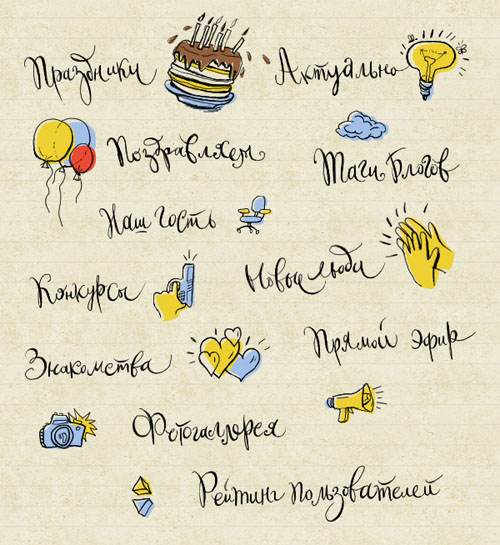 Праздники
Актуально
Поздравляем
Таги Блогов
Наш гость
Новые люди
Конкурсы
Прямой Эфир
Знакомства
Фотогаллерея
Рейтинг пользователей